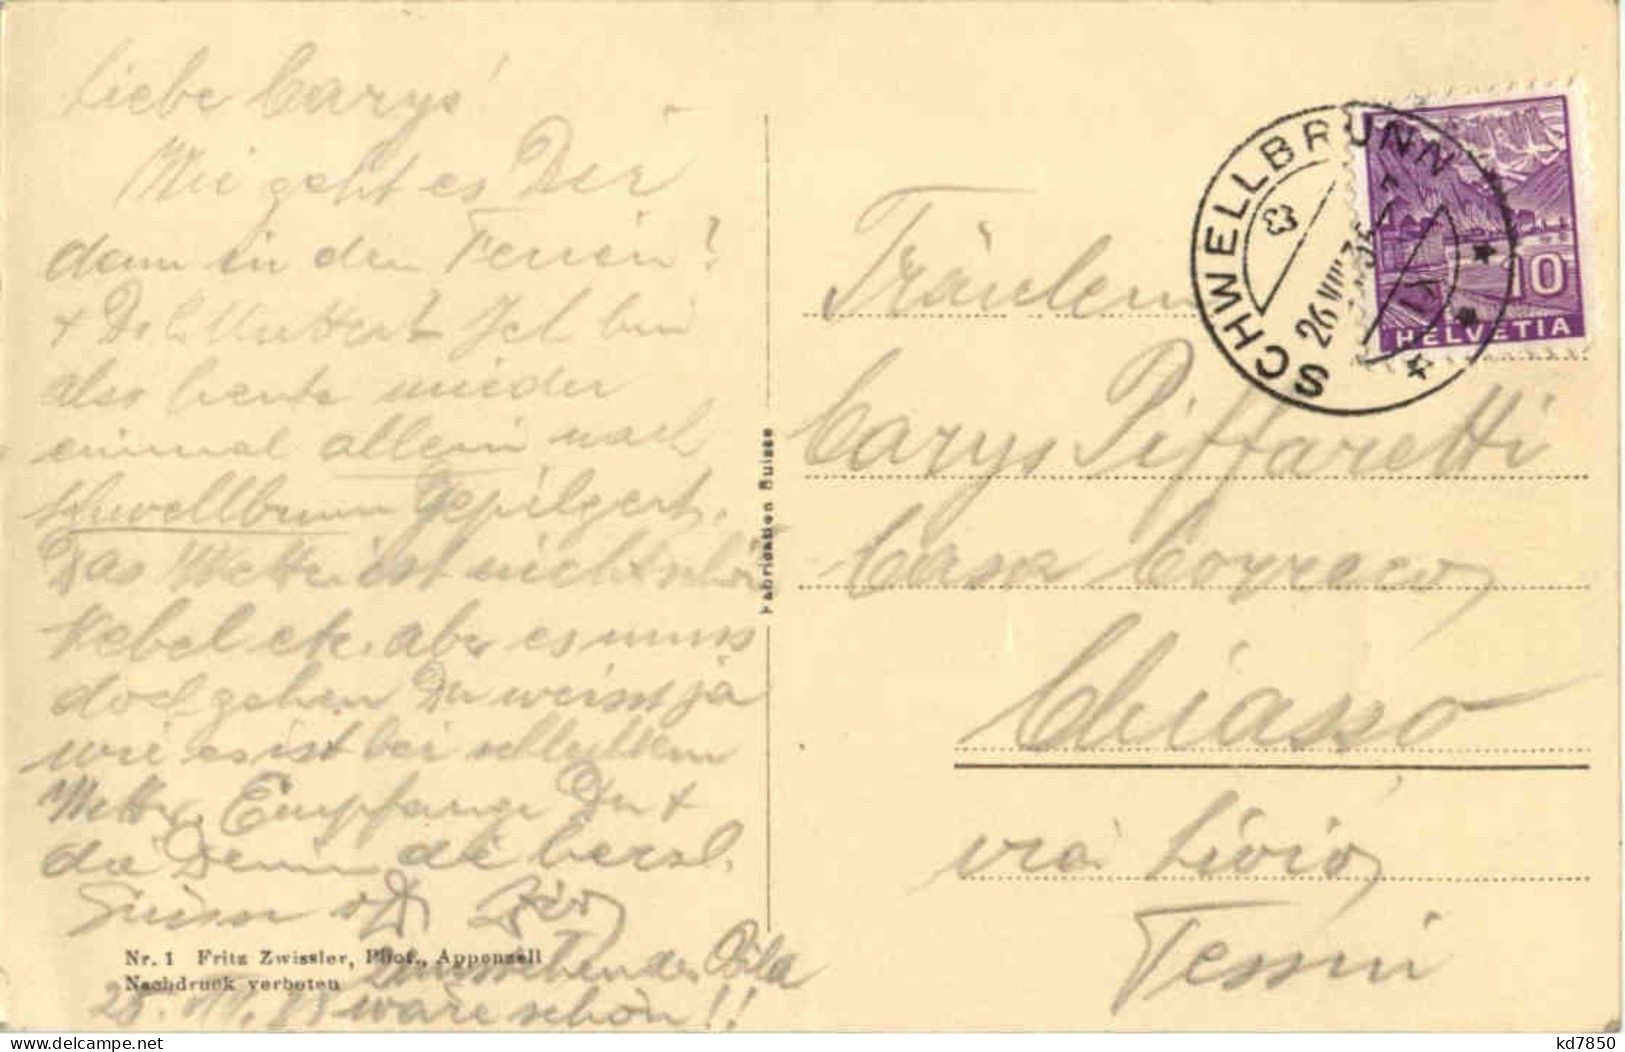 Liebe Carys!
Wie geht es Dir
dann in den Ferien?
Ich bin
also heute wieder
einmal allein nach
Schwellbrunn gepilgert.
Das Wetter ist nicht schön
Nebel etc. aber es muss
doch gehen Du weisst ja
wie es ist bei schlechtem
Wetter. Empfange Du +
die Deinen die herzl.
wäre schön!!
Nr. 1 Fritz Zwissler, Phot., Appenzell
Nachdruck verboten
Fabrication Suisse
SCHWELLBRUNN
26.VIII.35
10
HELVETIA
Fräulein
Carys Piffaretti
Casa
Chiasso
via Livio,
Tessin
kd7850